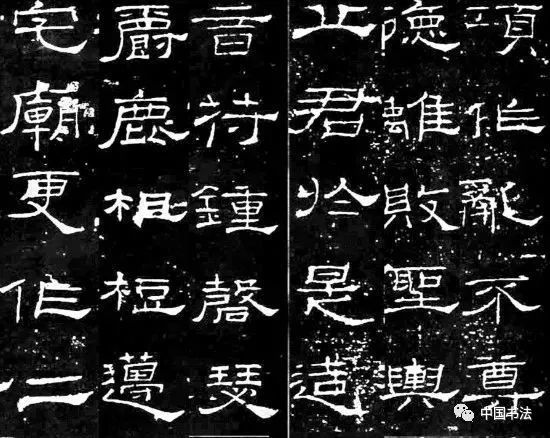 項作亂不尊
德離敗聖輿
丘君於是造
音苻鍾磬瑟
爵鹿柤梪籩
宅廟更作二
中国书法